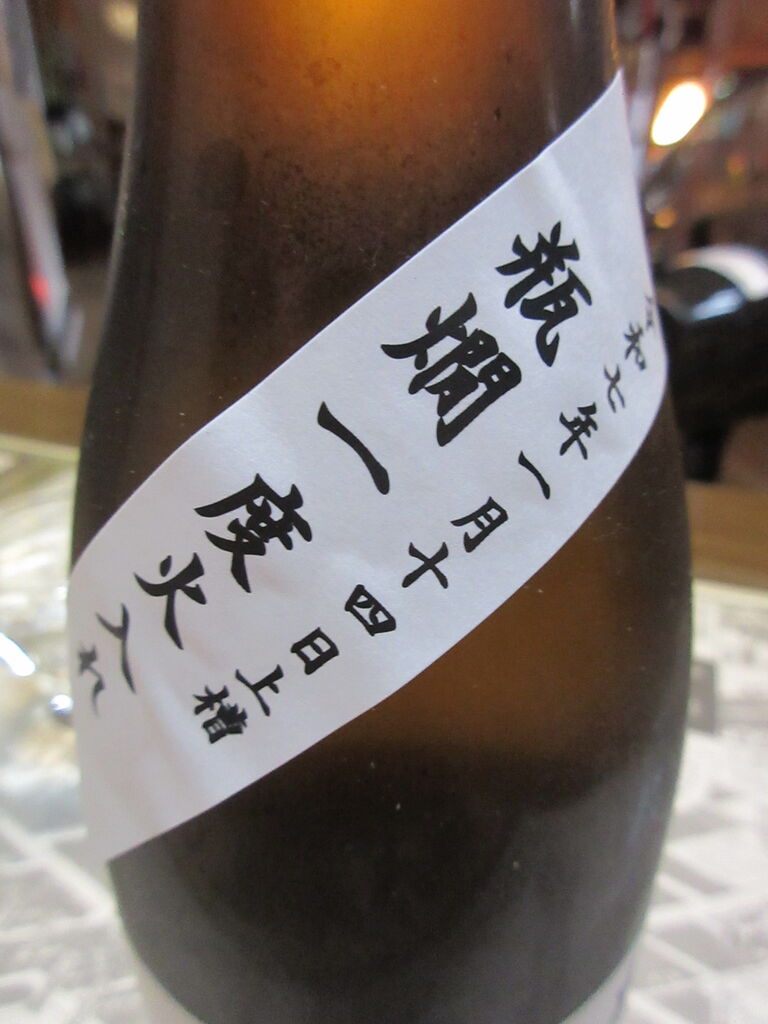 令和七年一月十四日上槽
瓶燗一度火入れ